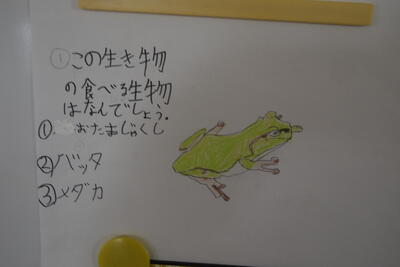 ①この生き物
の食べる生物
はなんでしょう。
①おたまじゃくし
②バッタ
③メダカ